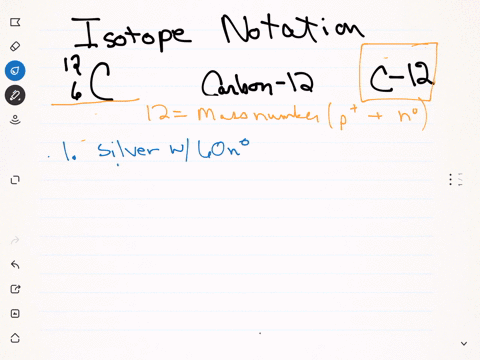 Isotope Notation
12 6 C Carbon-12 C-12
12 = Mass number (p⁺ + n⁰)
1. Silver w/ 60n⁰